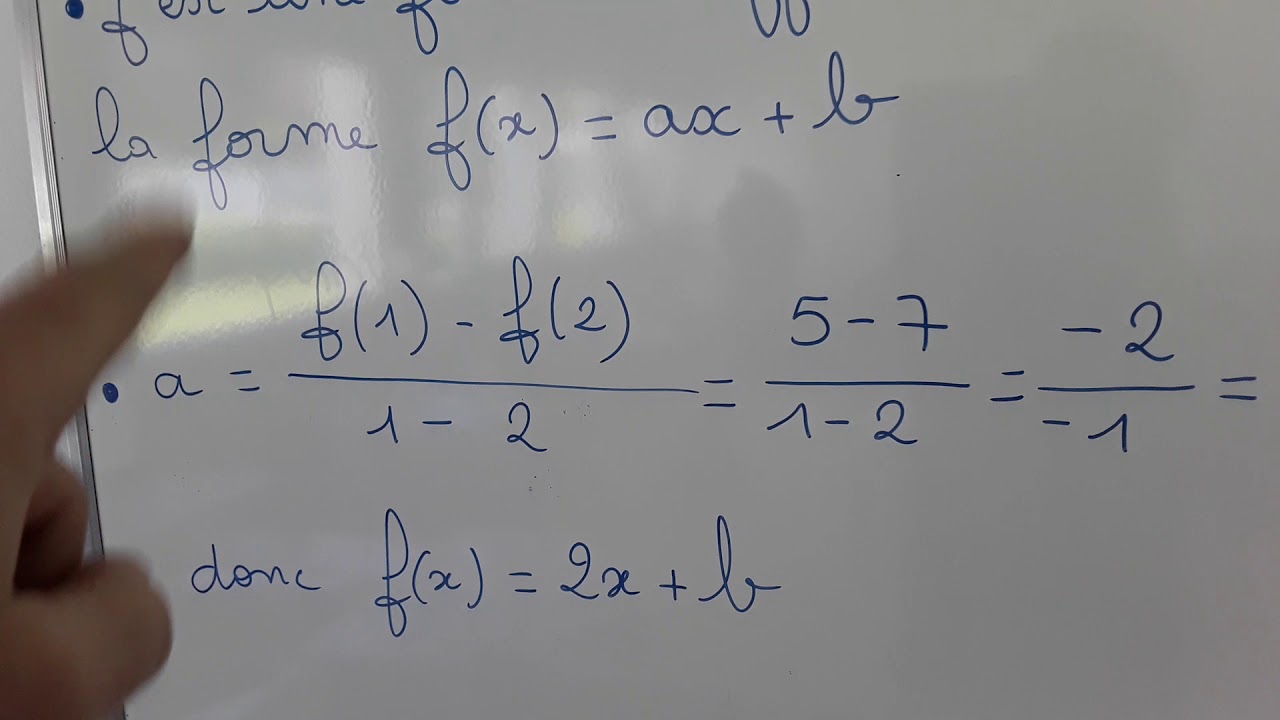 • f est une
la forme f(x) = ax + b
• a = (f(1) - f(2))/(1 - 2) = (5 - 7)/(1 - 2) = (-2)/(-1) =
donc f(x) = 2x + b